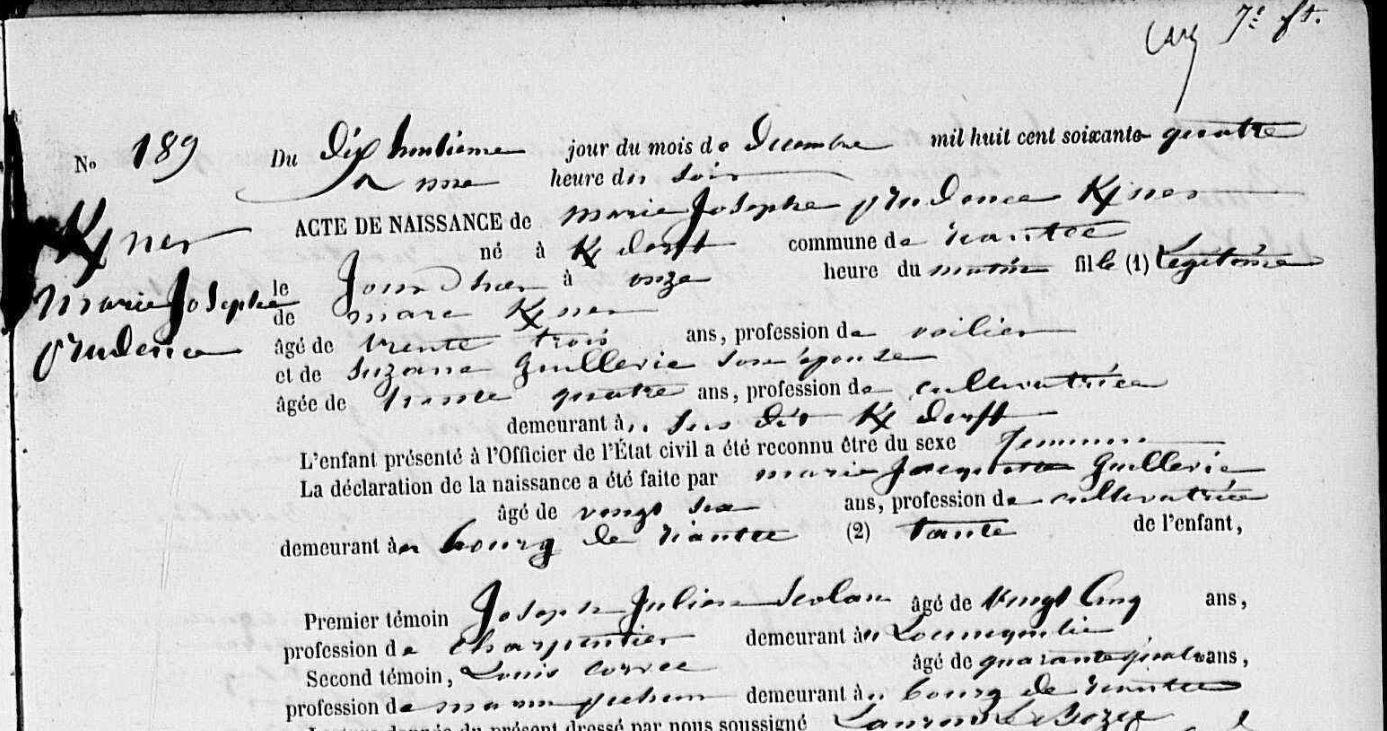 7e ft.
No 189 Du Dix huitieme jour du mois de Decembre mil huit cent soixante quatre
a onze heure du soir
ACTE DE NAISSANCE de marie Josephe prudence Kner
Kner
né à K dorft commune de riantec
marie Josephe
le Jour d'hier à onze heure du matin fille (1) Legitime
prudence
de marc Kner
âgé de trente trois ans, profession de voilier
et de Suzanne Guillevic son épouse
âgée de trente quatre ans, profession de cultivatrice
demeurant à sus dit K dorft
L'enfant présenté à l'Officier de l'État civil a été reconnu être du sexe feminin
La déclaration de la naissance a été faite par marie Jacquette Guillevic
âgé de vingt six ans, profession de cultivatrice
demeurant au bourg de riantec (2) tante de l'enfant,
Premier témoin Joseph Julien Scolan âgé de vingt Cinq ans,
profession de charpentier demeurant à
Second témoin, Louis Corvec âgé de quarante quatre ans,
profession de marin pecheur demeurant au bourg de riantec
Lecture donnée du présent dressé par nous soussigné Laurent Le Bozec